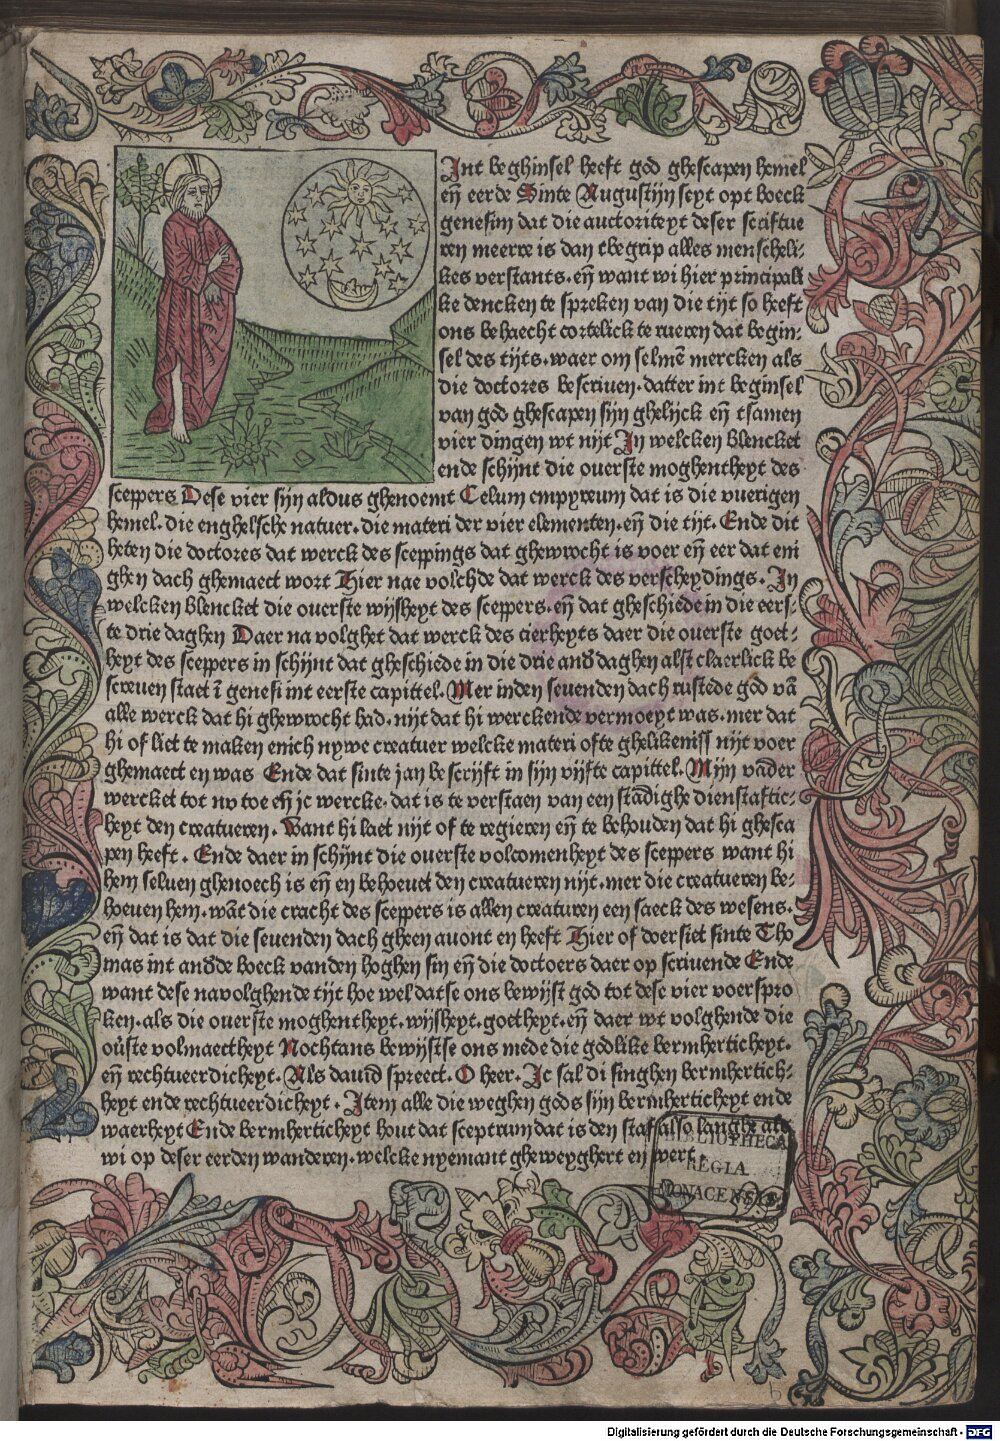 Int beghinsel heeft god ghescapen hemel
eñ eerde Sinte Augustijn seyt opt boeck
genesim dat die auctoriteyt deser scriftue
ren meerre is dan tbegrip alles menscheli-
kes verstants. eñ want wi hier principali
ke dencken te spreken van die tijt so heeft
ons behaecht cortelick te rueren dat begin-
sel des tijts. waer om selmē mercken als
die doctores bescriven. datter int beginsel
van god ghescapen sijn ghelijck eñ tsamen
vier dingen wt nijt In welcken blencket
ende schijnt die ouerste moghentheyt des
sceppers Dese vier sijn aldus ghenoemt Celum empyreum dat is die vuerigen
hemel. die enghelsche natuer. die materi der vier elementen. eñ die tijt. Ende dit
heten die doctores dat werck des sceppings dat ghewrocht is voer eñ eer dat eni
ghen dach ghemaect wort Hier nae volchde dat werck des verscheydings. In
welcken blencket die ouerste wijsheyt des sceppers. eñ dat gheschiede in die eers-
te drie daghen Daer na volghet dat werck des cierheyts daer die ouerste goet-
heyt des sceppers in schijnt dat gheschiede in die drie and daghen alst claerlick be
screuen staet ī genesi int eerste capittel. Mer inden seuenden dach rustede god vā
alle werck dat hi ghewrocht had. nijt dat hi werckende vermoeyt was. mer dat
hi of liet te maken enich nywe creatuer welcke materi ofte ghelikeniss nijt voer
ghemaect en was Ende dat sinte jan bescrijft in sijn vijfte capittel. Mijn vāder
wercket tot nv toe eñ jc wercke. dat is te verstaen van een stādighe dienstaftic-
heyt den creatueren. Want hi laet nijt of te regieren eñ te behouden dat hi ghesca
pen heeft. Ende daer in schijnt die ouerste volcomenheyt des sceppers want hi
hem seluen ghenoech is eñ en behoeuet den creatueren nijt. mer die creatueren be-
hoeuen hem. wāt die cracht des sceppers is allen creaturen een saeck des wesens.
eñ dat is dat die seuenden dach gheen auont en heeft Hier of doer siet sinte Tho
mas int ande boeck vanden hoghen sin eñ die doctoers daer op scriuende Ende
want dese navolghende tijt hoe wel datse ons bewijst god tot dese vier voerspro
ken. als die ouerste moghentheyt. wijsheyt. goetheyt. eñ daer wt volghende die
ouste volmaectheyt Nochtans bewijstse ons mede die godlike bermherticheyt.
eñ rechtueerdicheyt. Als dauid spreect. O heer. Ic sal di singhen bermhertich-
heyt ende rechtueerdicheyt. Item alle die weghen gods sijn bermherticheyt ende
waerheyt Ende bermherticheyt hout dat sceptrum dat is den staf also langhe als
wi op deser eerden wanderen. welcke nyemant gheweyghert en wert.
BIBLIOTHECA
REGIA
MONACENSIS
Digitalisierung gefördert durch die Deutsche Forschungsgemeinschaft - DFG